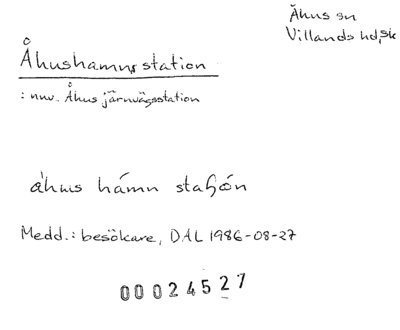 Åhus sn
Villands hd, sk
Åhushamns station
: nuv. Åhus järnvägsstation
åhus hámn staꞔón
Medd.: besökare, DAL 1986-08-27
00024527